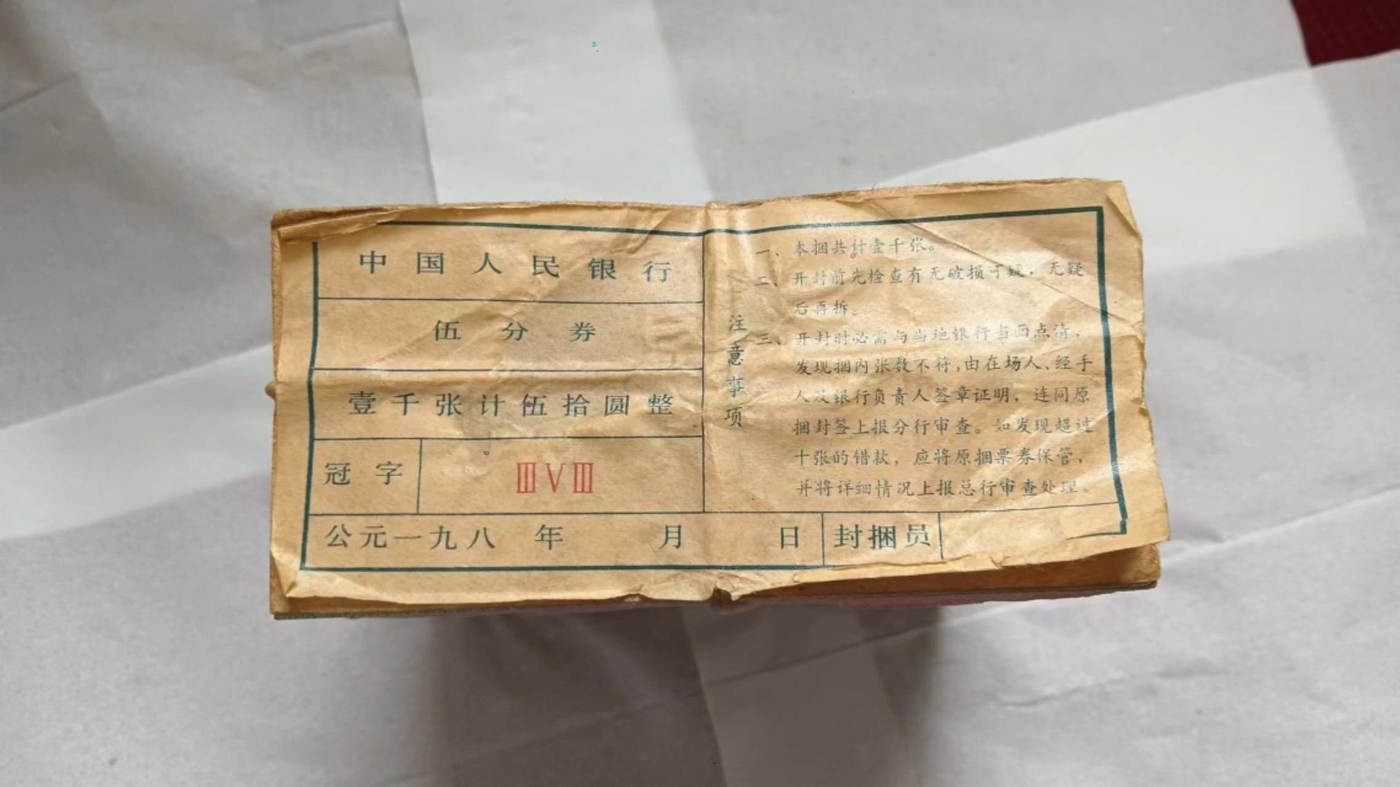 中国人民银行
伍分券
壹千张计伍拾圆整
冠字
ⅢⅤⅢ
公元一九八 年 月 日 封捆员
注意事项
一、本捆共计壹千张。
二、开封前先检查有无破损可疑，无疑
后再拆。
三、开封时必需与当地银行当面点清，
发现捆内张数不符，由在场人、经手
人及银行负责人签章证明，连同原
捆封签上报分行审查。如发现超过
十张的错款，应将原捆票券保管，
并将详细情况上报总行审查处理。